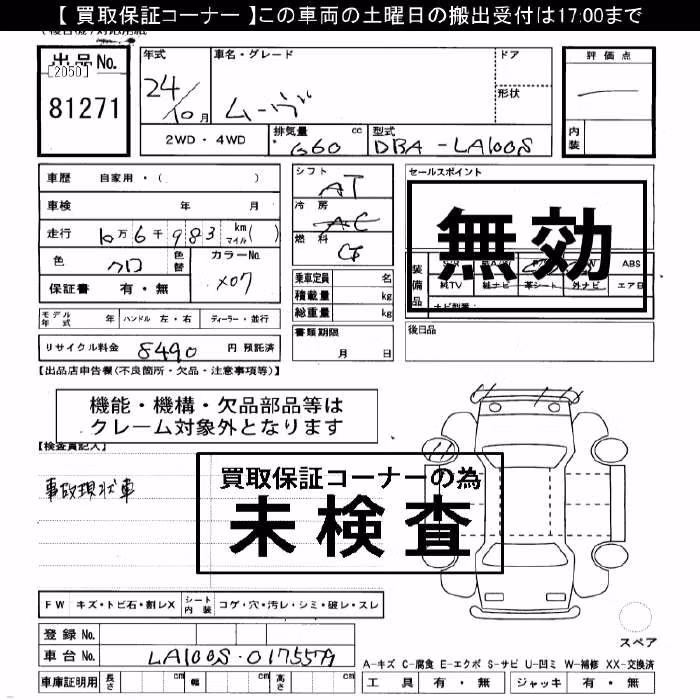 【 買取保証コーナー 】この車両の土曜日の搬出受付は17:00まで
出品No.
[2050]
81271
年式
24/10月
車名・グレード
ムーヴ
ドア
形状
評価点
内装
2WD・4WD
排気量 660 cc
型式 DBA-LA100S
車歴 自家用・( )
車検 年 月
走行 6千983 km マイル ( )
色 クロ 色替
カラーNo. X07
保証書 有・無
シフト AT
冷房 AC
燃料
乗車定員 名
積載量 kg
総重量 kg
セールスポイント
無効
装備品
ABS
純TV 純ナビ 革シート 外ナビ エアB
ナビ型番:
モデル年式 年 ハンドル 左・右 ディーラー・並行
リサイクル料金 8490 円 預託済
書類期限
月 日
後日品
【出品店申告欄(不良箇所・欠品・注意事項等)】
機能・機構・欠品部品等は
クレーム対象外となります
【検査員記入】
事故現状車
買取保証コーナーの為
未検査
FW キズ・トビ石・割レX シート内装 コゲ・穴・汚レ・シミ・破レ・スレ
スペア
登録No.
車台No. LA100S-0175579
A-キズ C-腐食 E-エクボ S-サビ U-凹ミ W-補修 XX-交換済
車庫証明用 長さ cm 幅 cm 高さ cm
工具 有・無 ジャッキ 有・無